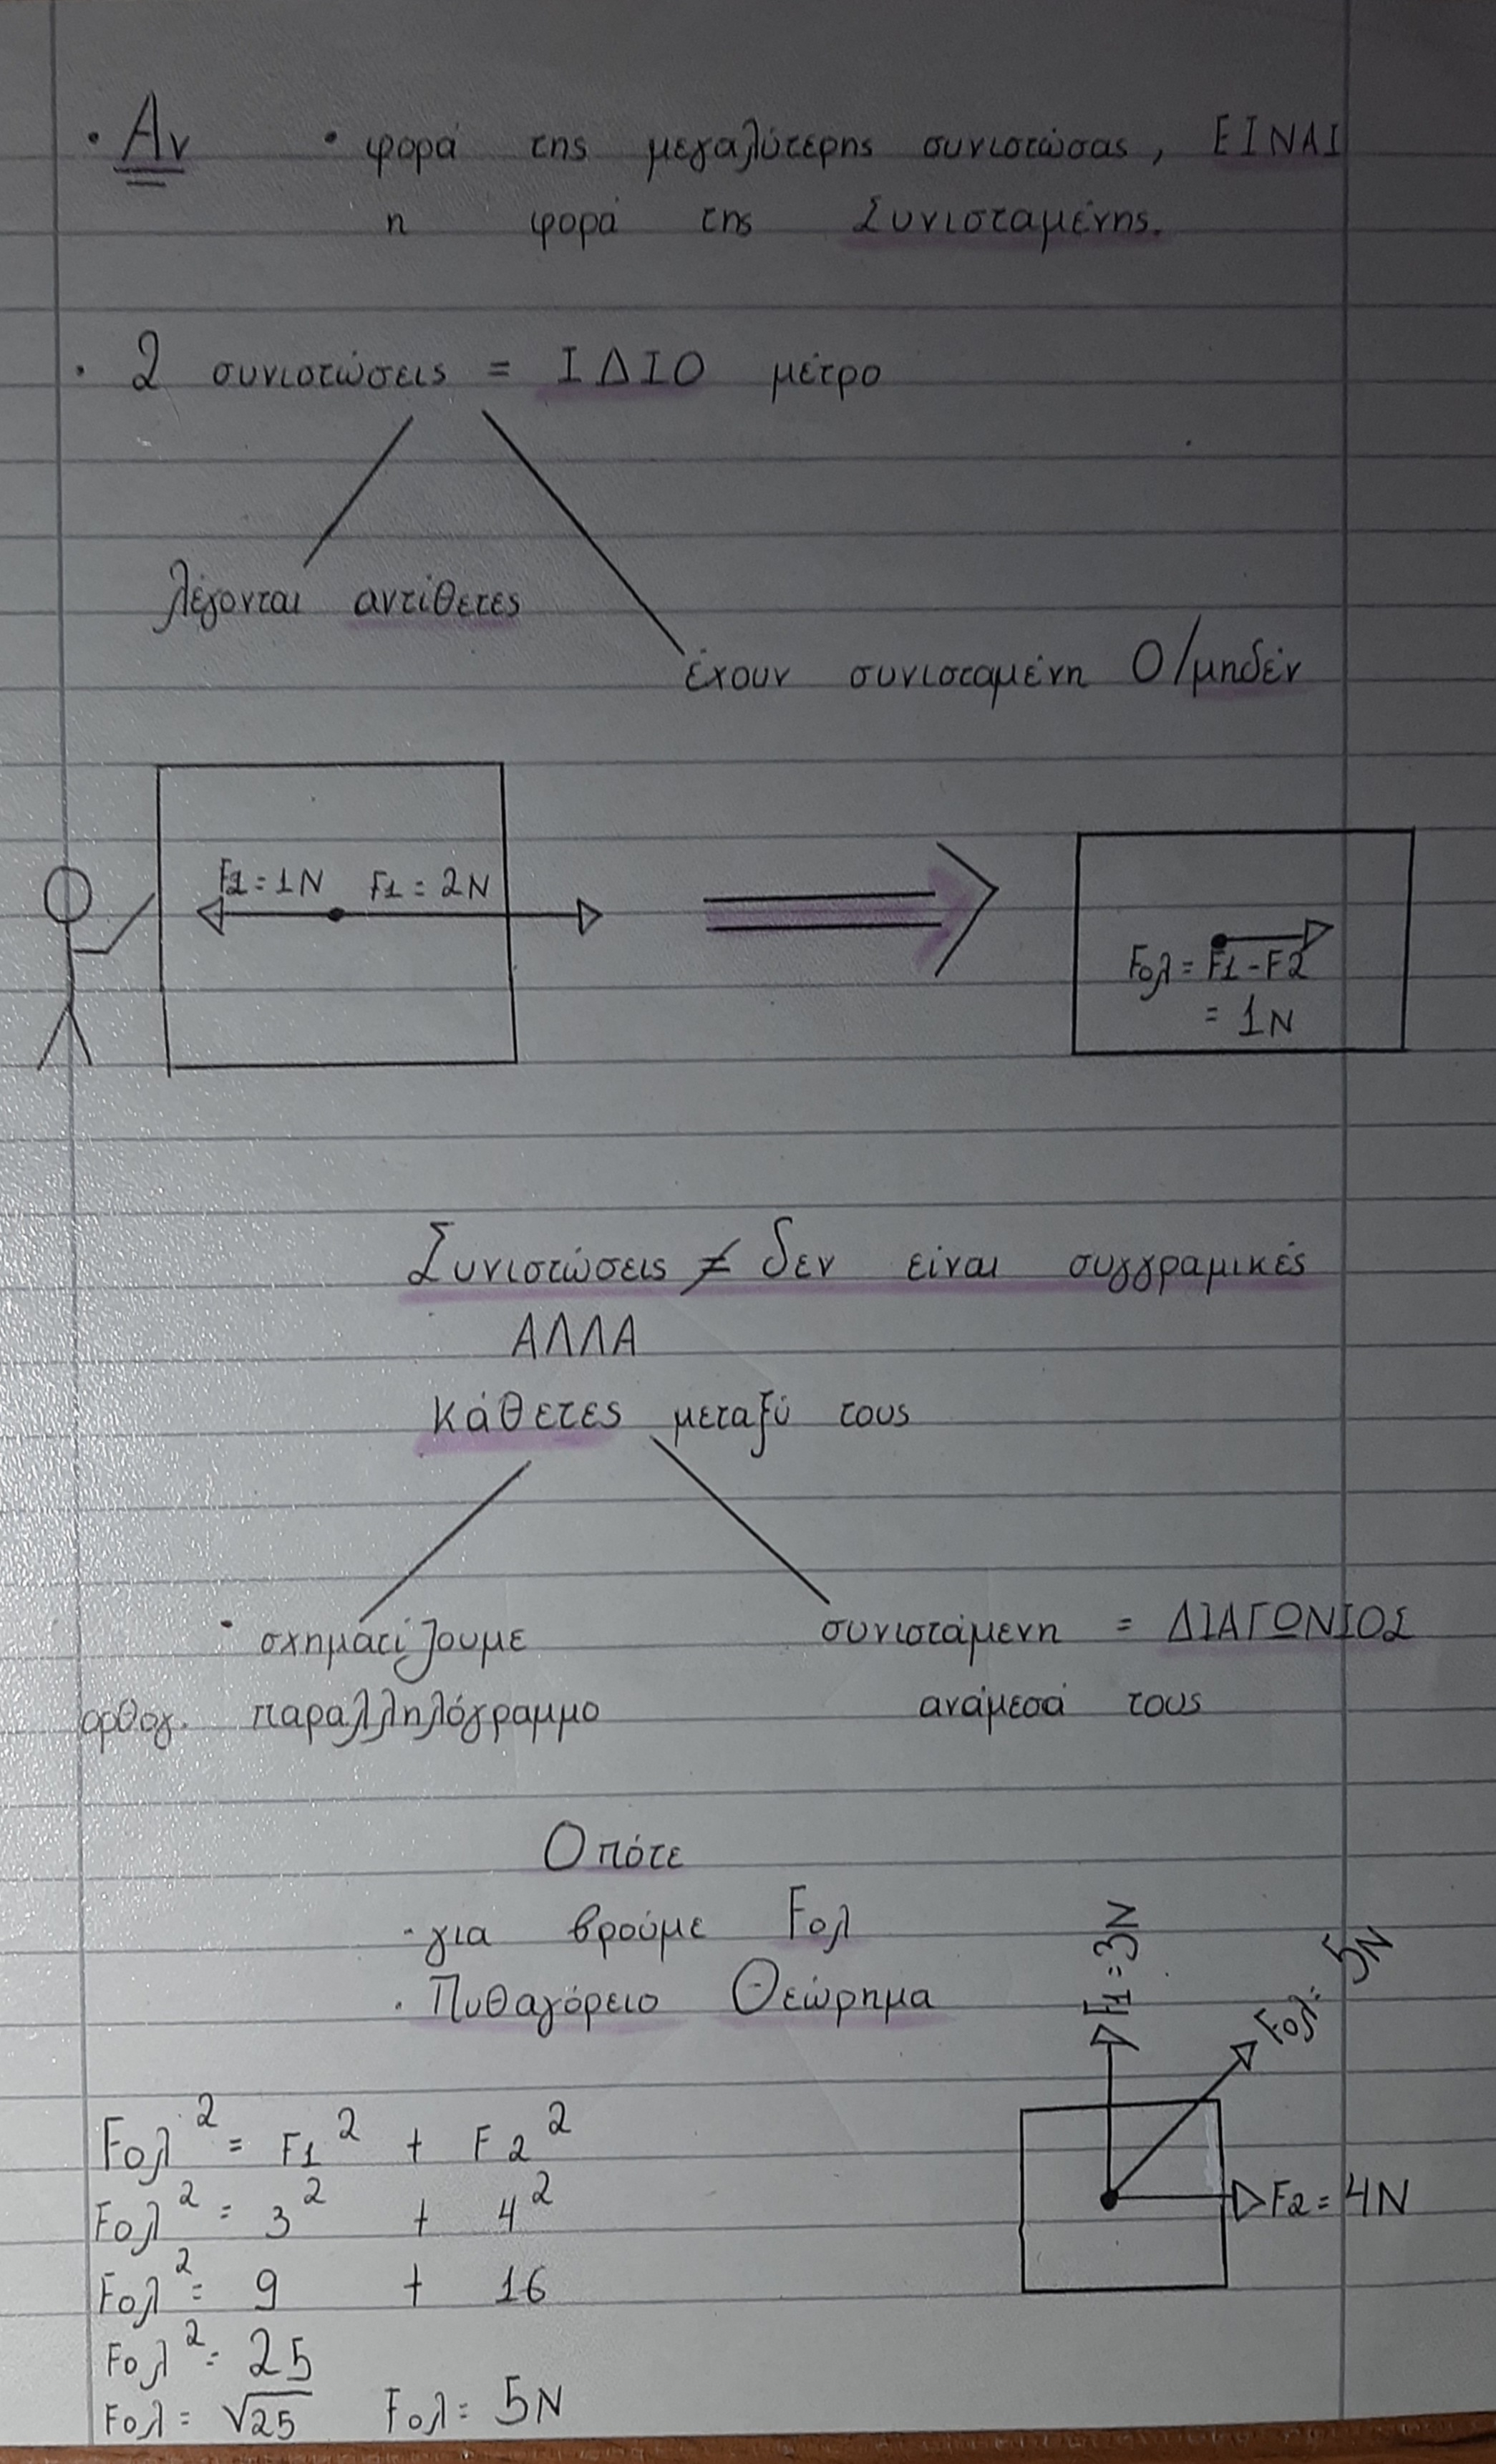 · Αν · φορά της μεγαλύτερης συνιστώσας, ΕΙΝΑΙ
η φορά της Συνισταμένης.
· 2 συνιστώσεις = ΙΔΙΟ μέτρο
λέγονται αντίθετες
έχουν συνισταμένη 0/μηδέν
F2=1N F1=2N
Fολ = F1-F2
= 1N
Συνιστώσεις ≠ δεν είναι συγγραμικές
ΑΛΛΑ
κάθετες μεταξύ τους
· σχηματίζουμε
ορθογ. παραλληλόγραμμο
συνιστάμενη = ΔΙΑΓΩΝΙΟΣ
ανάμεσά τους
Οπότε
·για βρούμε Fολ
· Πυθαγόρειο Θεώρημα
F1=3N
Fολ= 5N
F2=4N
Fολ² = F1² + F2²
Fολ² = 3² + 4²
Fολ² = 9 + 16
Fολ² = 25
Fολ = √25 Fολ = 5N